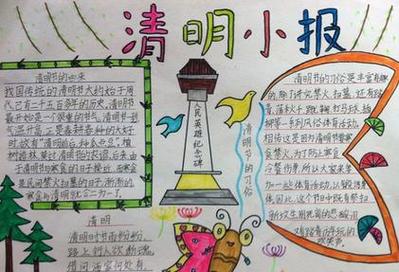 清明小报
清明节的由来
我国传统的清明节大约始于周
代,已有二千五百多年的历史,清明节
最开始是一个很重的节气,清明节一到,
气温升高,正是春耕春种的大好
时,故有“清明前后,种瓜点豆”。植
树造林,莫过清明的农谚。后来,由
于清明与寒食的日子接近,而寒食
是民间禁火扫墓的日子,渐渐的,
寒食与清明就合二为一了。
清明
清明时节雨纷纷,
路上行人欲断魂。
借问酒家何处有,
人民英雄纪念碑
清明节的习俗
清明节的习俗是丰富有趣
的,除了讲究禁火、扫墓,还有踏
青、荡秋千、蹴鞠、打马球、插
柳等一系列风俗体育活动。
相传这是因为清明节要寒
食禁火,为了防止寒食
冷餐伤身,所以大家来参
加一些体育活动,以锻炼身
体。因此,这个节中既有祭扫
新坟生别死离的悲酸泪,
又有踏青游玩的
欢笑声。